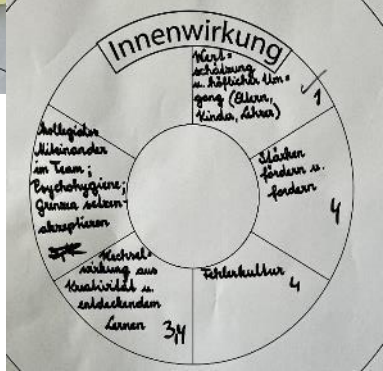 Innenwirkung
Wert=
schätzung
u. höflicher Um=
gang (Eltern,
Kinder, Lehrer)
1
Stärken
fördern u.
fordern
4
Fehlerkultur
4
Wechsel=
wirkung aus
Kreativität u.
entdeckendem
Lernen 3,4
Kollegiales
Miteinander
im Team;
Psychohygiene;
Grenzen setzen-
akzeptieren